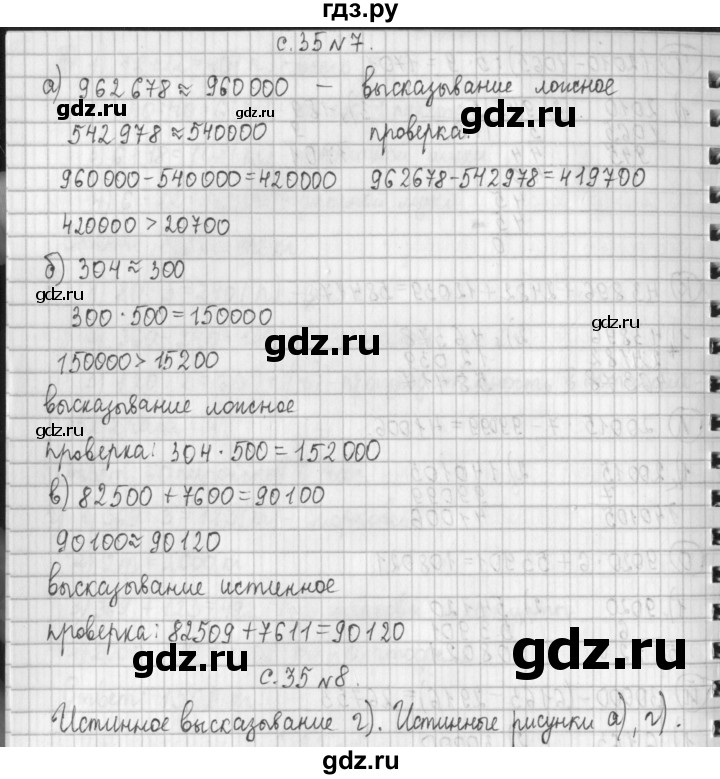 гдз.ру
с.35 №7.
а) 962678 ≈ 960000 – высказывание ложное
gdz.ru gdz.ru gdz.ru
542978 ≈ 540000 проверка:
960000-540000=420000 962678-542978=419700
420000 > 20700
б) 304 ≈ 300
gdz.ru
300 · 500 = 150000
gdz.ru
gdz.ru
150000 > 15200
высказывание ложное
gdz.ru
проверка: 304 · 500 = 152000
в) 82500 + 7600 = 90100
90100 ≈ 90120
высказывание истинное
проверка: 82509 + 7611 = 90120
gdz.ru
gdz.ru
с.35 №8.
Истинное высказывание г). Истинные рисунки а), г).
gdz.ru